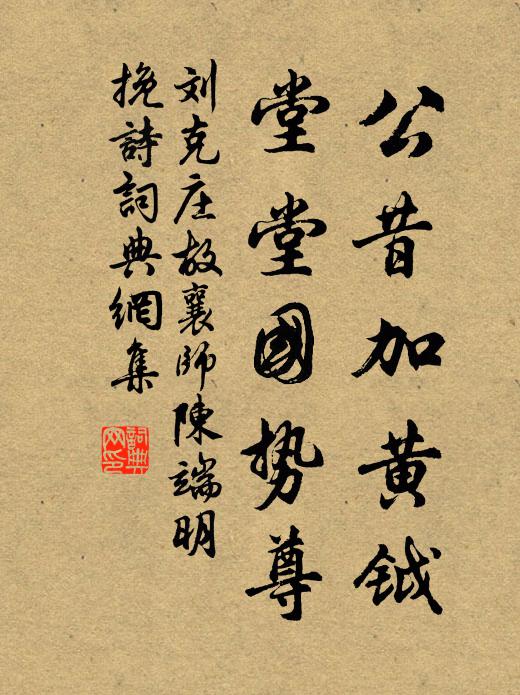 公昔加黄钺
堂堂國势尊
刘克庄故襄师陳端明
挽詩詞典網集
詞典網印